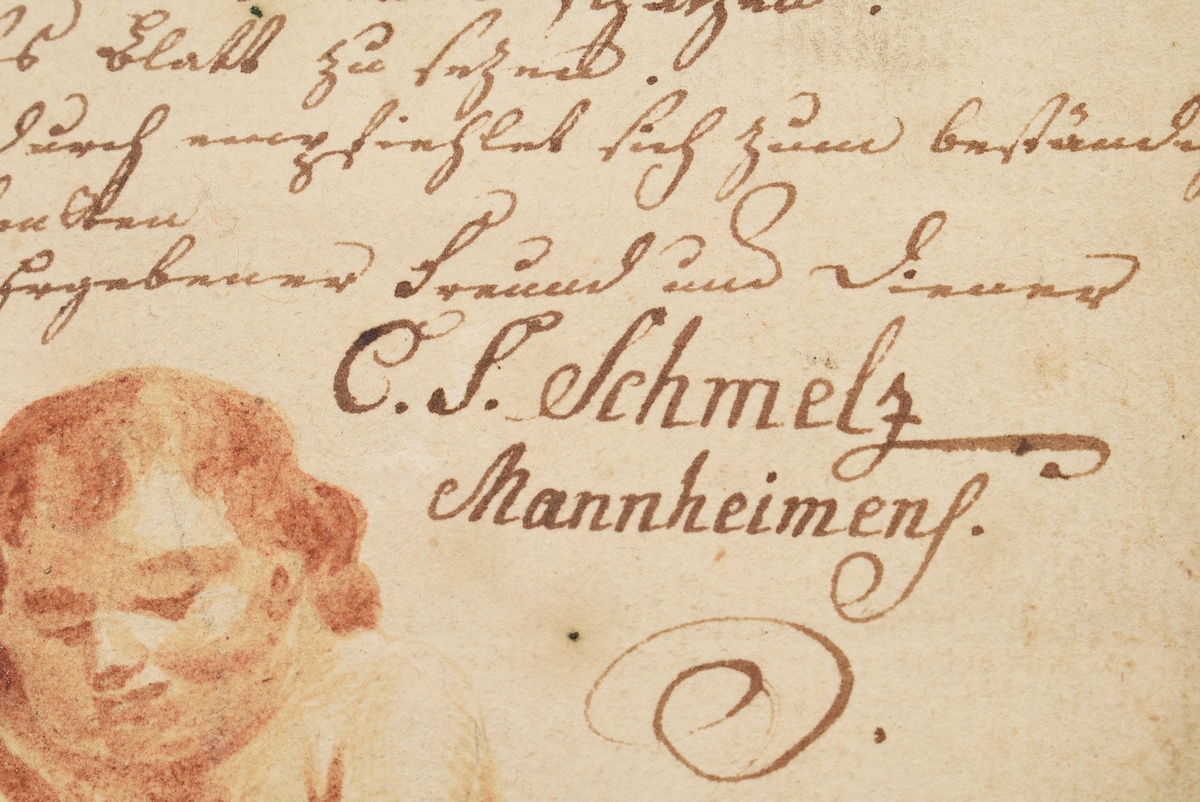 Blatt zu sezen.
durch empfiehlet sich zum bestän
Ergebener Freund und Diener
C. S. Schmelz
Mannheimens.